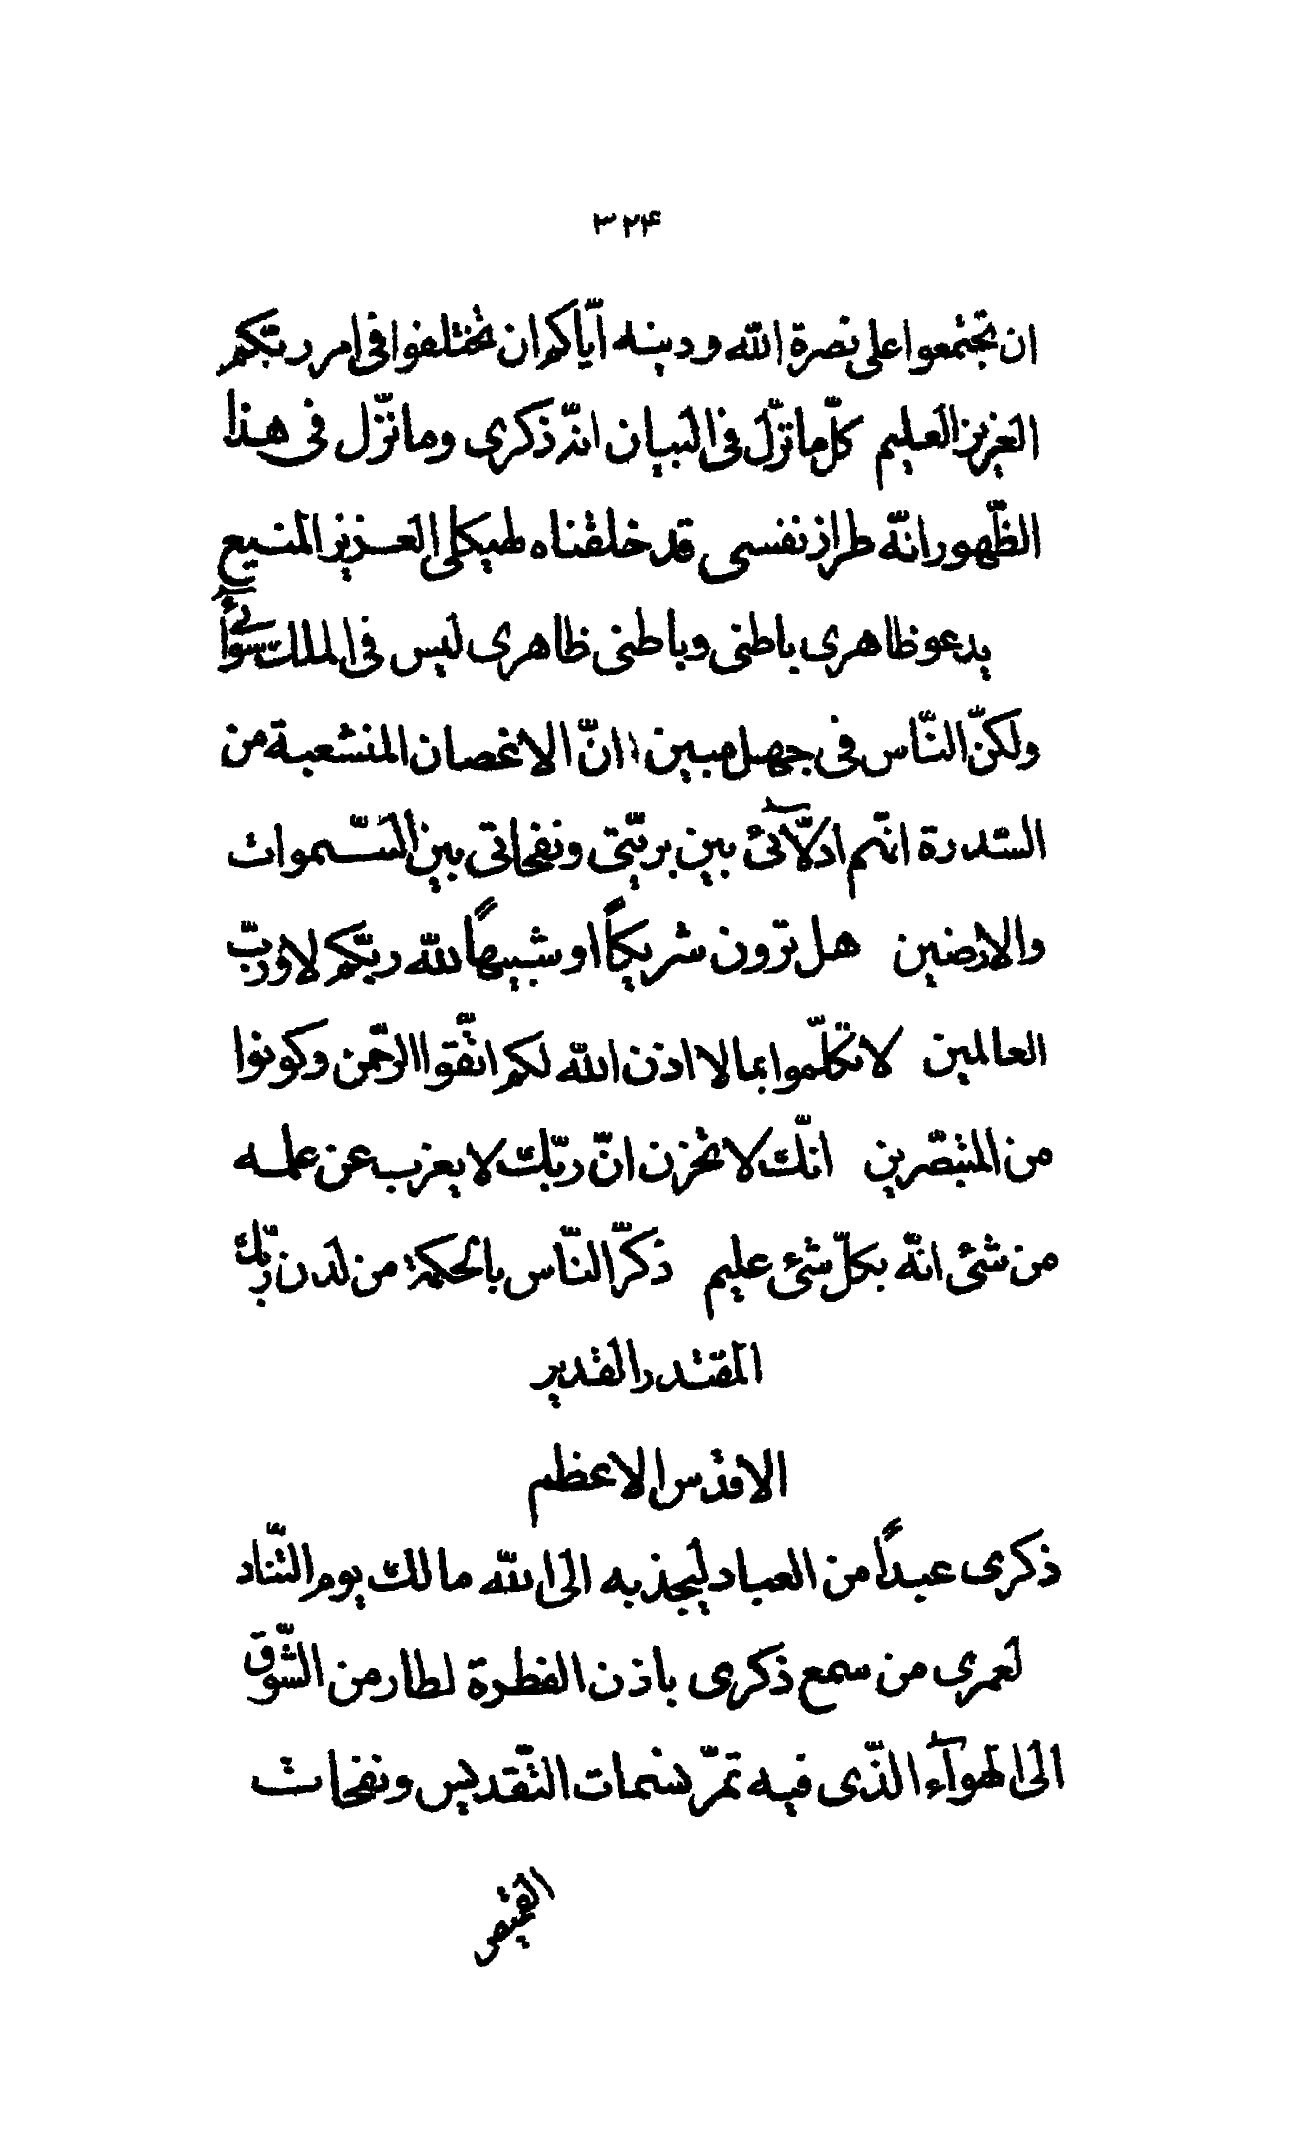 ۳۲۴
ان تجتمعوا على نصرة الله و دينه ايّاكم ان تختلفوا فى امر ربّكم
العزيز العليم كلّ ما نزّل فى البيان انّه ذكرى و ما نزّل فى هذا
الظّهور انّه طراز نفسى قد خلقناه لهيكلى العزيز المنيع
يدعو ظاهرى باطنى و باطنى ظاهرى ليس فى الملك سوآئى
ولكنّ النّاس فى جهل مبين انّ الاغصان المنشعبة من
السّدرة انّهم ادلّآئى بين بريّتى و نفحاتى بين السّموات
والارضين هل ترون شريكاً او شبيهاً لله ربّكم لا و ربّ
العالمين لا تكلّموا بما لا اذن الله لكم اتّقوا الرّحمن وكونوا
من المتبصّرين انّك لا تحزن انّ ربّك لا يعزب عن علمه
من شئ انّه بكلّ شئ عليم ذكّر النّاس بالحكمة من لدن ربّك
المقتدر القدير
الاقدس الاعظم
ذكرى عبداً من العباد ليجذبه الى الله مالك يوم التّناد
لعمرى من سمع ذكرى باذن الفطرة لطار من الشّوق
الى الهوآء الّذى فيه تمرّ نسمات التّقديس و نفحات
القميص